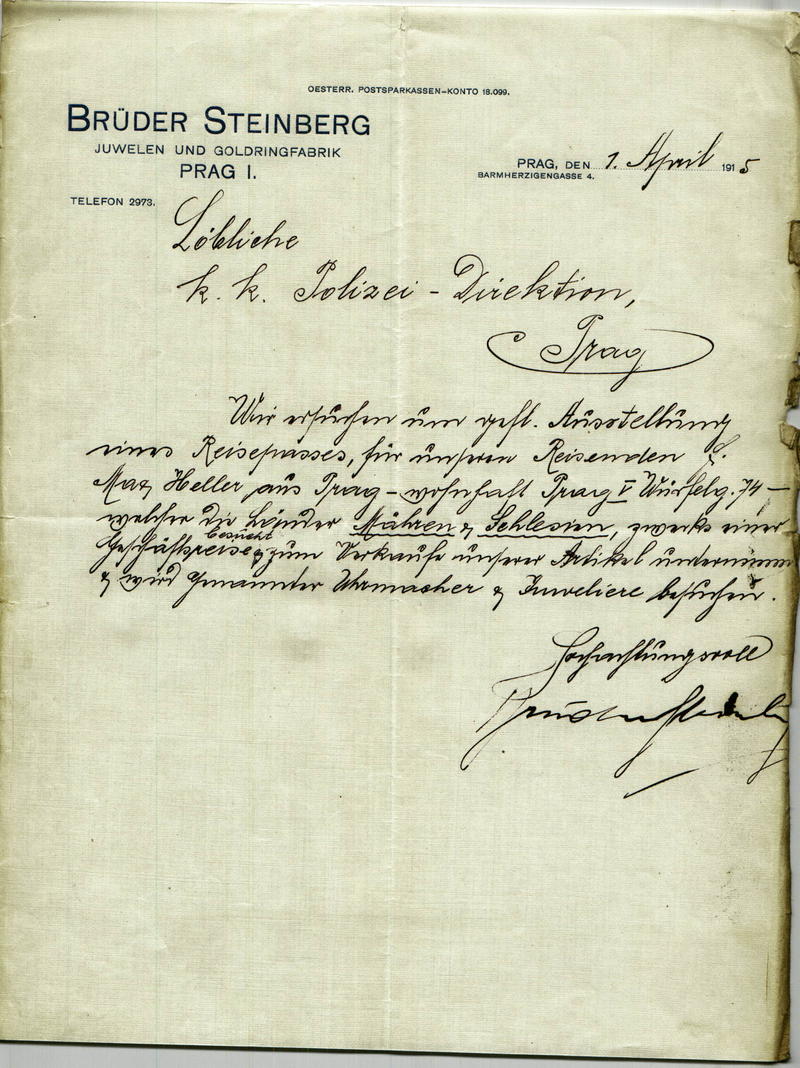 OESTERR. POSTSPARKASSEN-KONTO 18.099.
BRÜDER STEINBERG
JUWELEN UND GOLDRINGFABRIK
PRAG I.
TELEFON 2973.
PRAG, DEN 1. April 1915
BARMHERZIGENGASSE 4.
Löbliche
k. k. Polizei-Direktion,
Prag
Wir ersuchen um gefl. Ausstellung
eines Reisepasses, für unseren Reisenden H.
Max Heller aus Prag - wohnhaft Prag V Würfelg. 74 -
welcher die Länder Mähren & Schlesien, zwecks einer
besucht
Geschäftsreise & zum Verkaufe unserer Artikel unternimmt
& wird genannter Uhrmacher & Juweliere besuchen.
Hochachtungsvoll
Brüder Steinberg